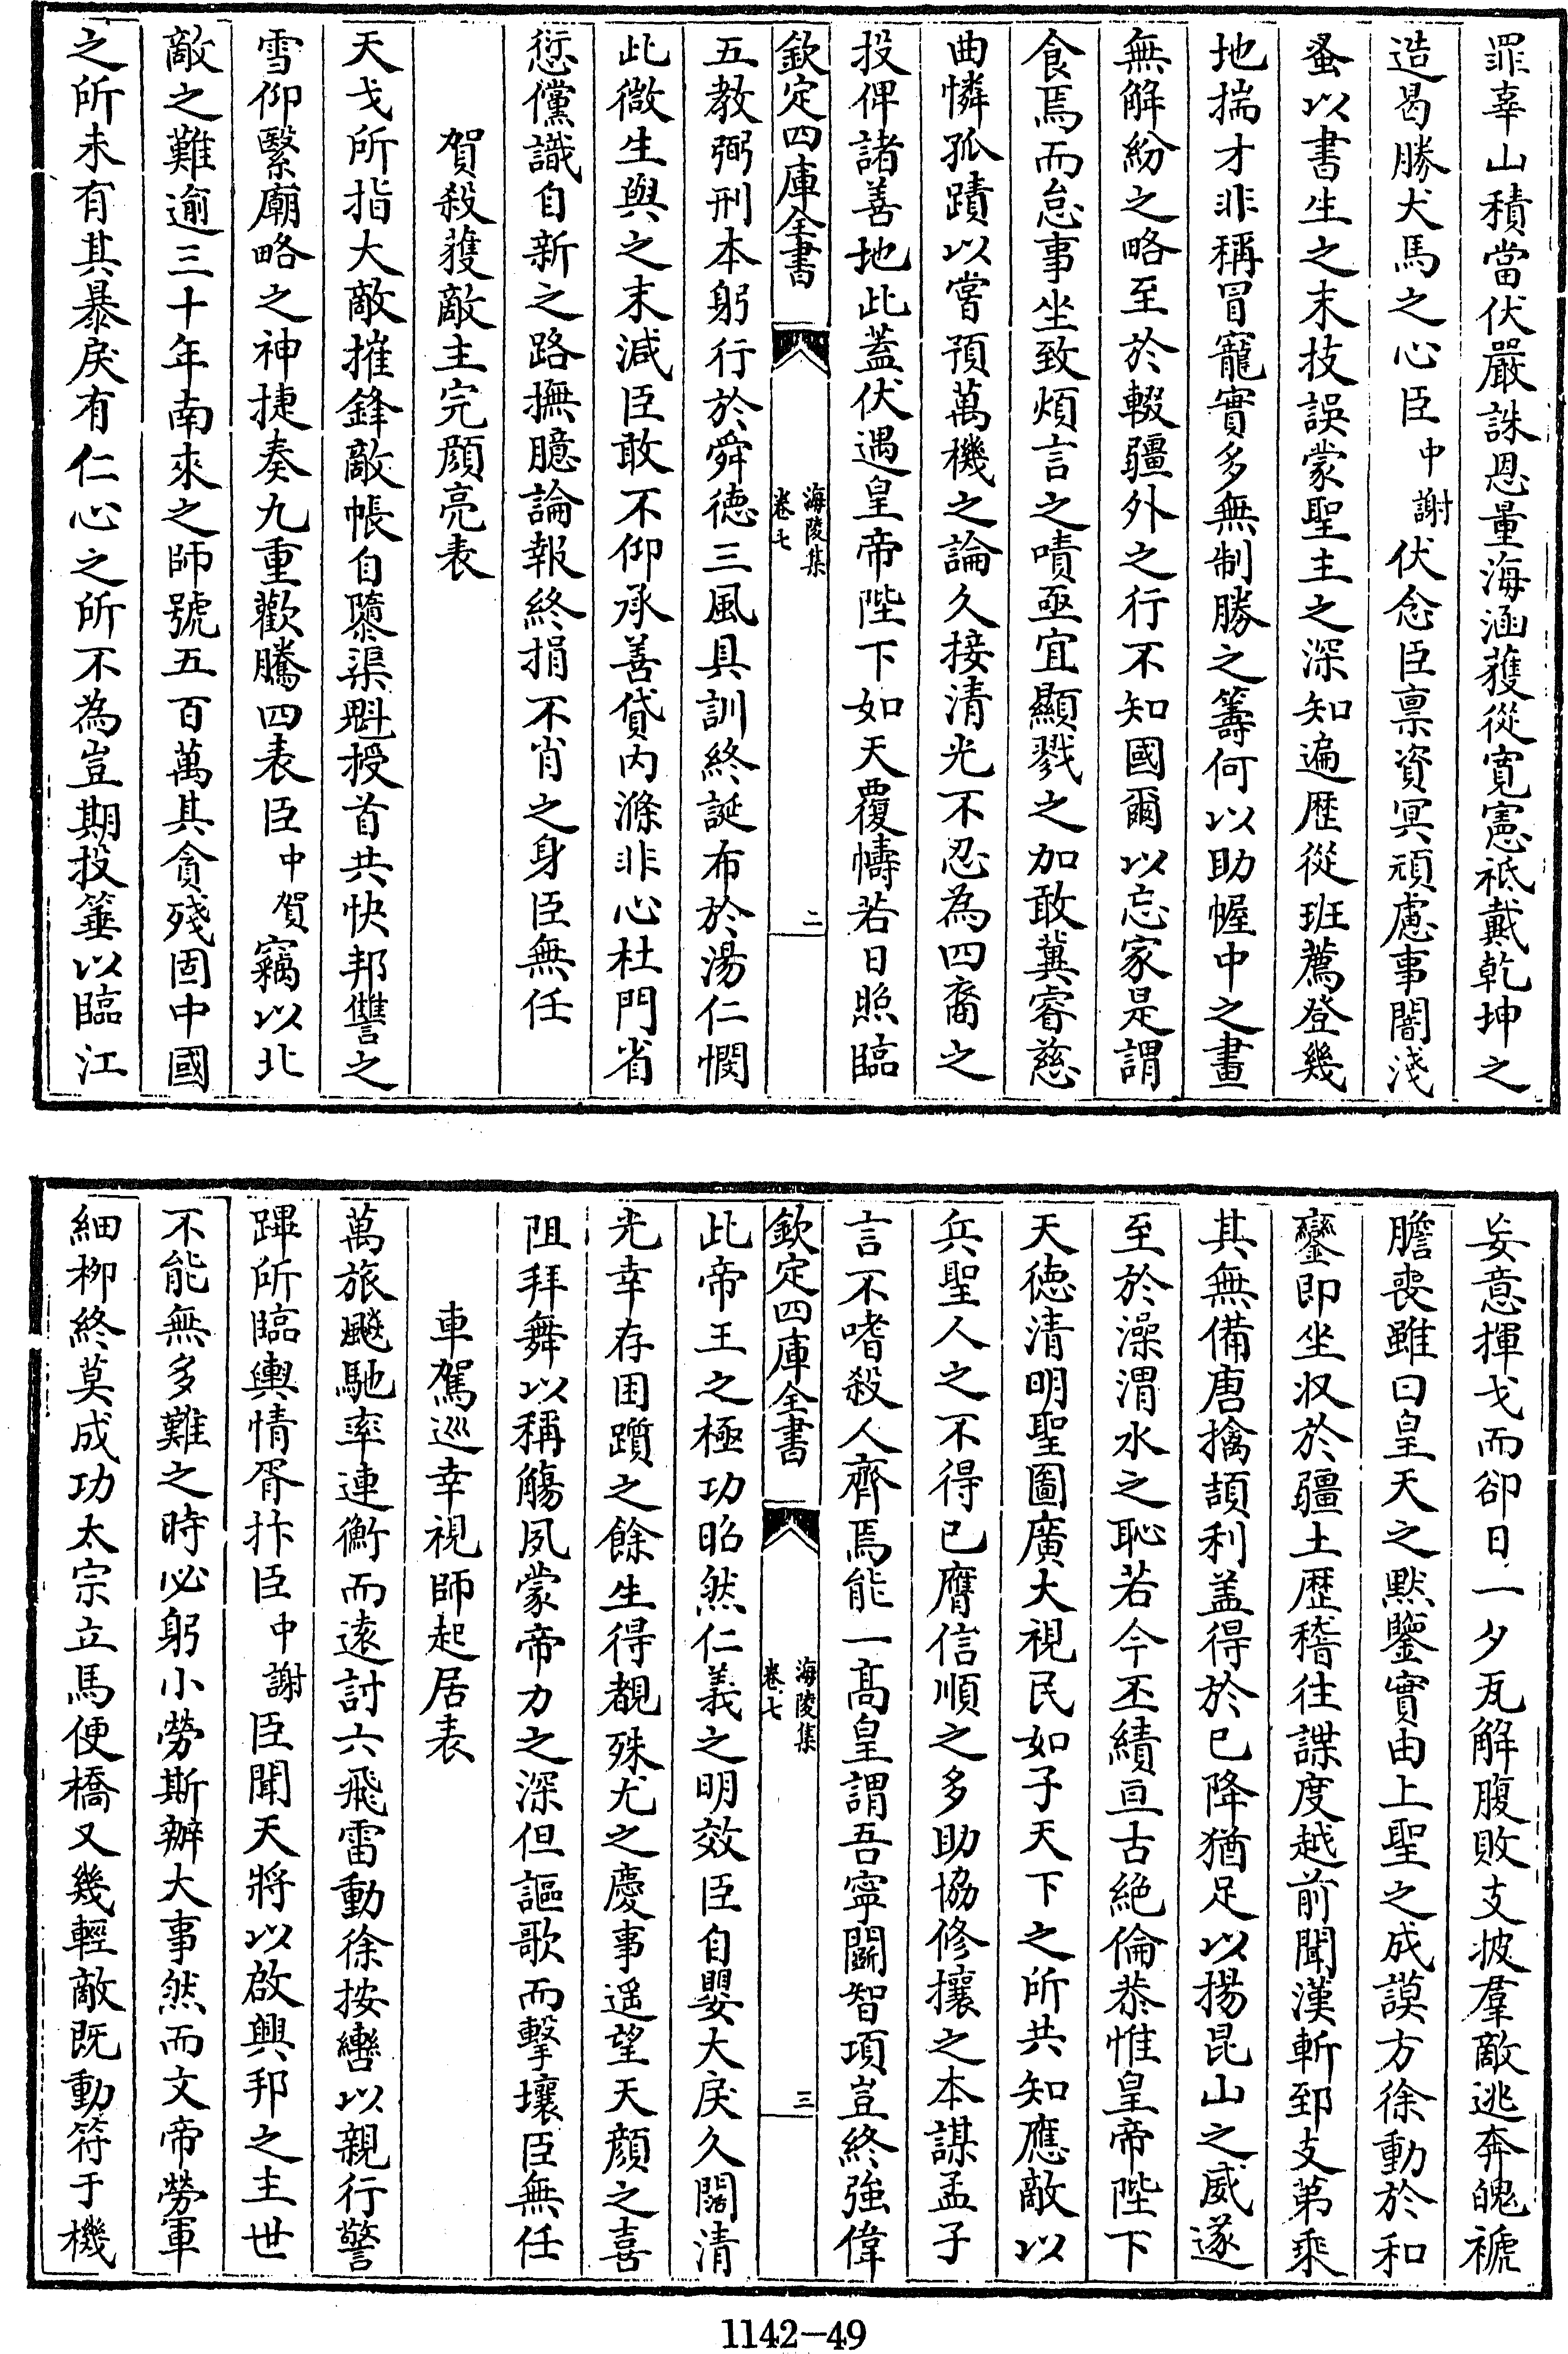 罪辜山積當伏嚴誅恩量海涵獲從寛憲祗戴乾坤之
造曷勝犬馬之心臣中謝伏念臣禀資冥頑慮事闇淺
蚤以書生之末技誤蒙聖主之深知遍歴從班薦登幾
地揣才非稱冒寵實多無制勝之籌何以助幄中之畫
無解紛之略至於輟疆外之行不知國爾以忘家是謂
食焉而怠事坐致煩言之嘖亟宜顯戮之加敢冀睿慈
曲憐孤蹟以嘗預萬機之論久接清光不忍為四裔之
投俾諸善地此蓋伏遇皇帝陛下如天覆幬若日照臨
欽定四庫全書
海陵集
卷七
二
五教弼刑本躬行於舜徳三風具訓終誕布於湯仁憫
此微生與之末減臣敢不仰承善貸内滌非心杜門省
愆儻識自新之路撫臆論報終捐不肖之身臣無任
賀殺獲敵主完顔亮表
天戈所指大敵摧鋒敵帳自隳渠魁授首共快邦讐之
雪仰繄廟略之神捷奏九重歡騰四表臣中賀竊以北
敵之難逾三十年南來之師號五百萬其貪殘固中國
之所未有其暴戾有仁心之所不為豈期投箠以臨江
妄意揮戈而卻日一夕瓦解腹敗支披羣敵逃奔魄褫
膽喪雖曰皇天之黙鑒實由上聖之成謨方徐動於和
鑾即坐収於疆土歴稽往諜度越前聞漢斬郅支第乘
其無備唐擒頡利盖得於已降猶足以揚昆山之威遂
至於澡渭水之恥若今丕績亘古絶倫恭惟皇帝陛下
天徳清明聖圖廣大視民如子天下之所共知應敵以
兵聖人之不得已膺信順之多助協修攘之本謀孟子
言不嗜殺人齊焉能一髙皇謂吾寧鬭智項豈終強偉
欽定四庫全書
海陵集
卷七
三
此帝王之極功昭然仁義之明效臣自嬰大戾久闊清
光幸存困躓之餘生得覩殊尤之慶事遥望天顔之喜
阻拜舞以稱觴夙蒙帝力之深但謳歌而擊壤臣無任
車駕巡幸視師起居表
萬旅飈馳率連衡而逺討六飛雷動徐按轡以親行警
蹕所臨輿情胥抃臣中謝臣聞天將以啟興邦之主世
不能無多難之時必躬小勞斯辦大事然而文帝勞軍
細柳終莫成功太宗立馬便橋又幾輕敵既動符于機
1142-49